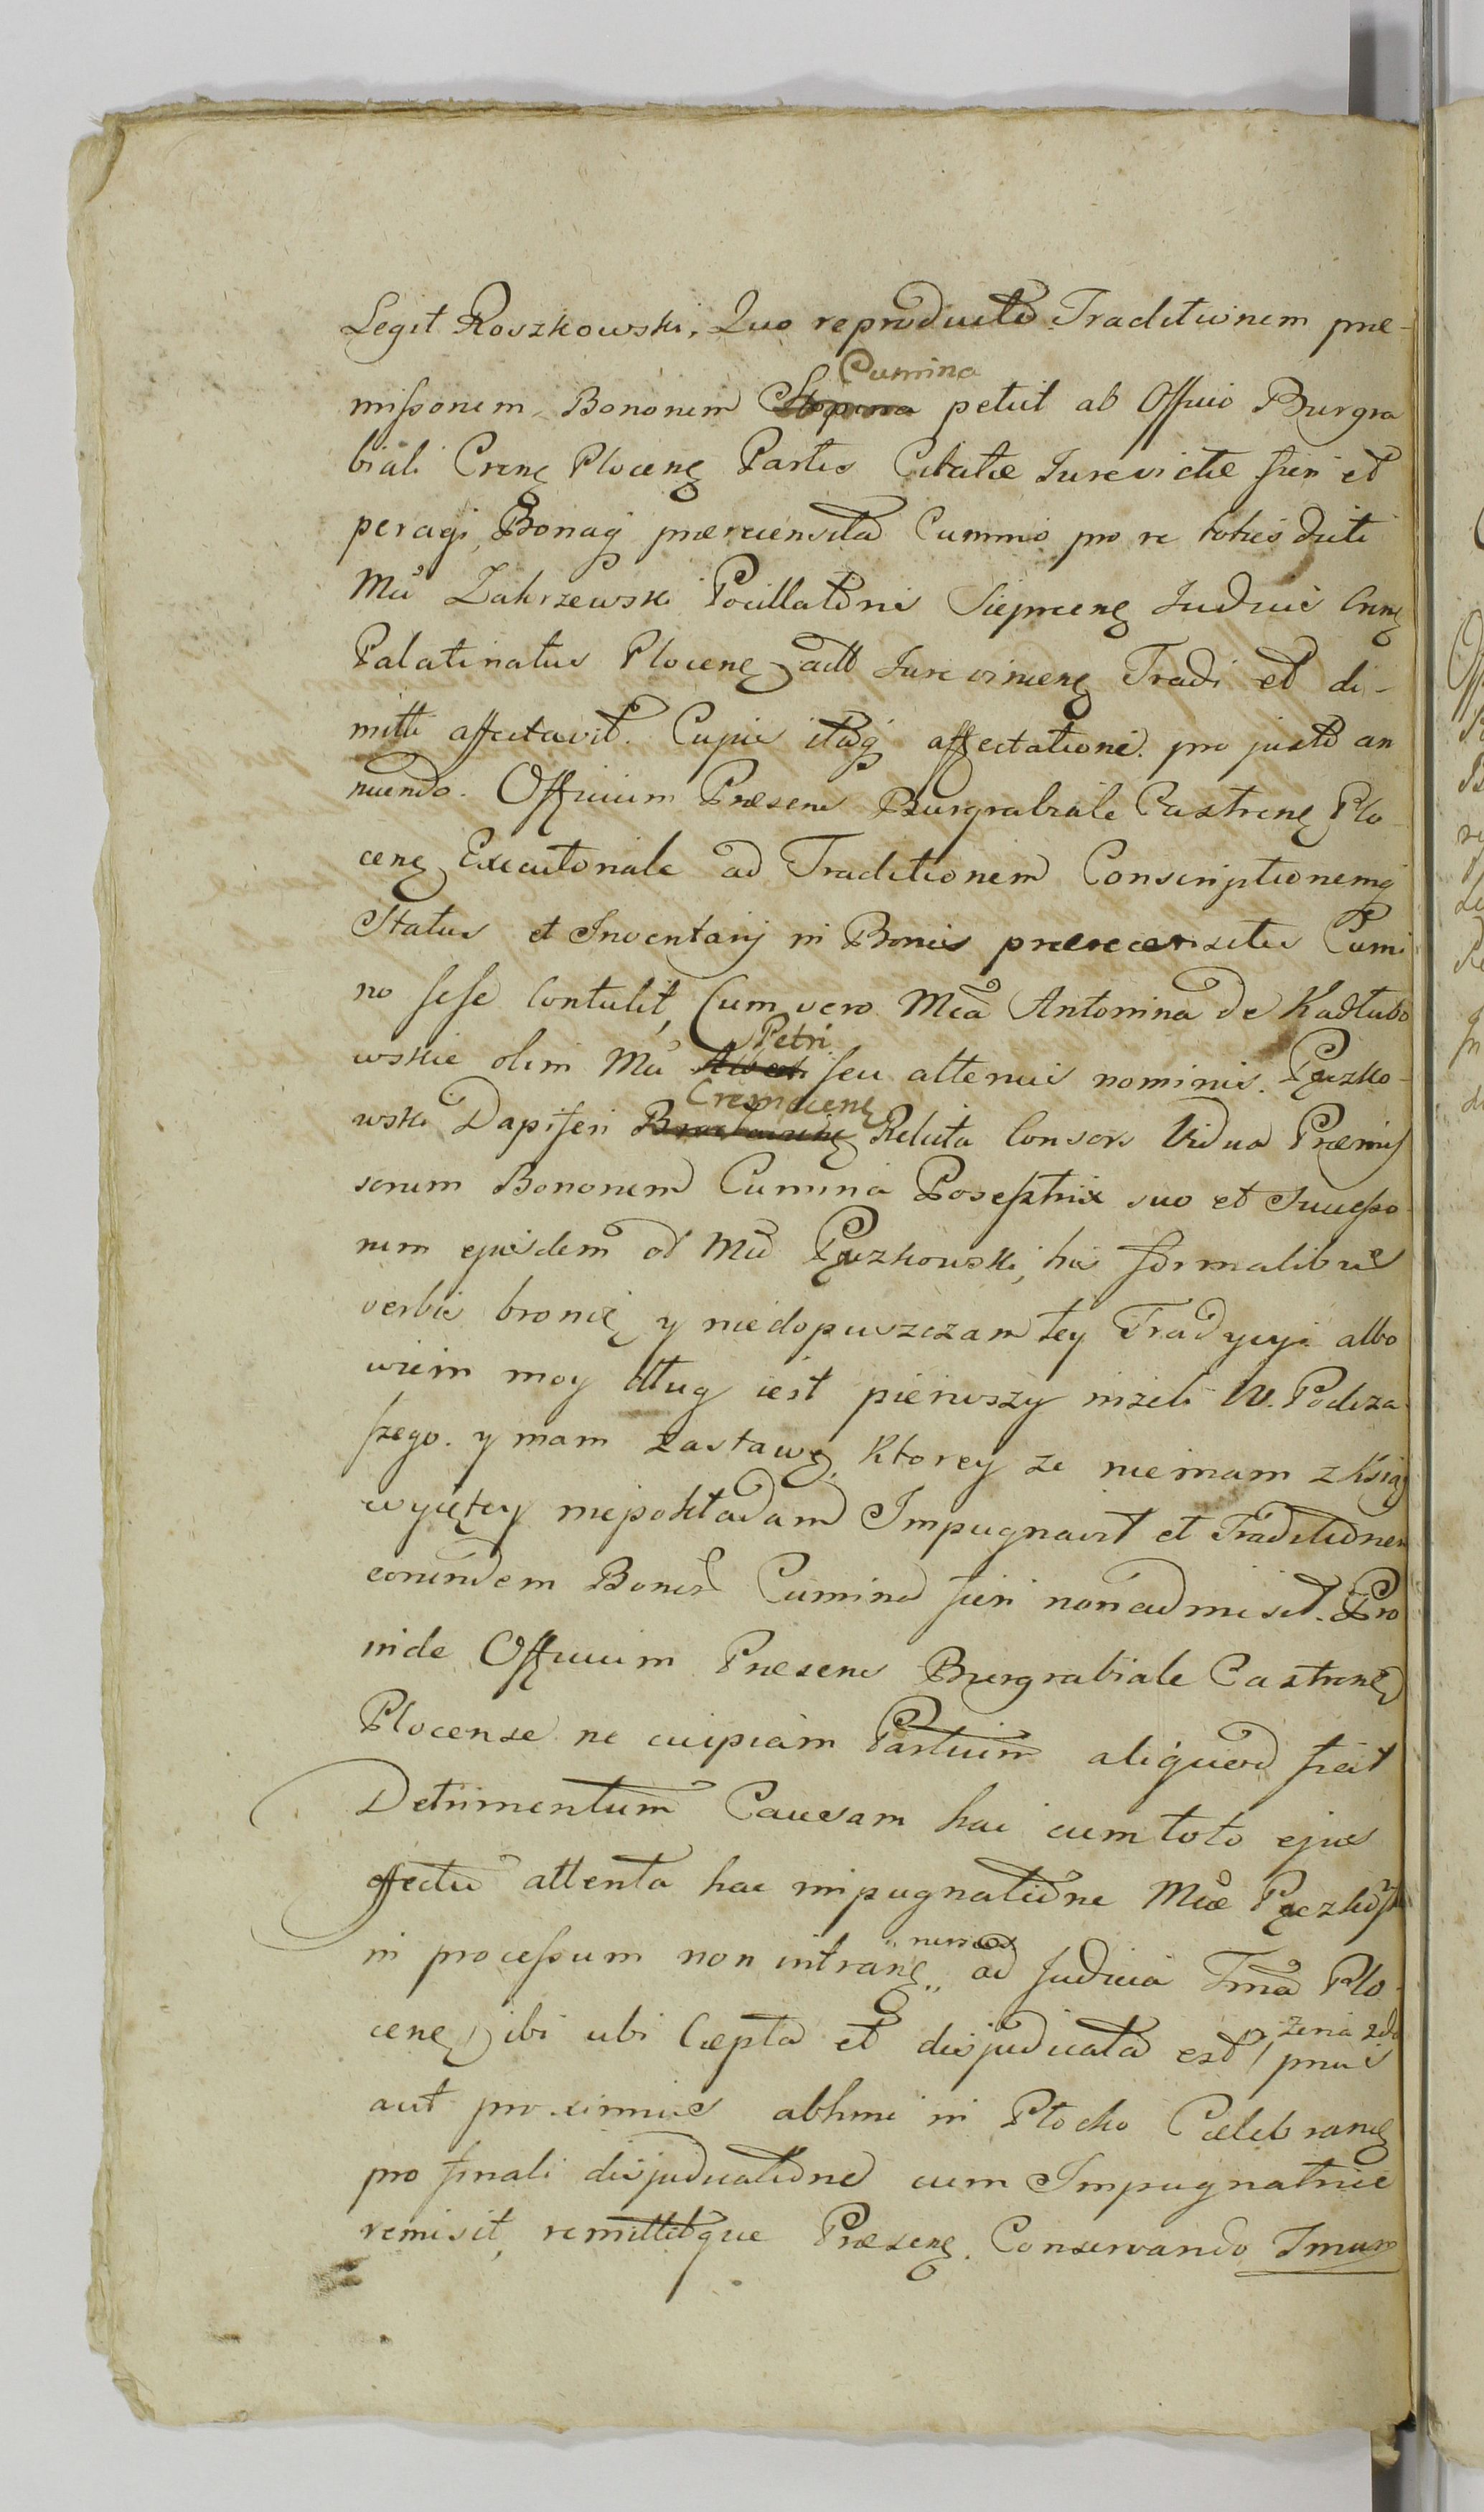 Legit Roszkowski, Quo reproducto Traditionem præ-
missorum Bonorum Stopina Cumino petiit ab Officio Burgra
biali Crenę Plocenę Partis Citatæ Jurevictæ fieri et
peragi, Bonaq præecensita Cumino pro re toties dicti
Mci Zakrzewski Pocillatoris Sieprcenę Judicis Crnę
Palatinatus Plocenę actt Jurevincenę Tradi et di-
mitti affectavit. Cujus itaq affectationi pro justo an
nuendo. Officium Præsens Burgrabiale Castrenę Plo
cenę Executoriale ad Traditionem Conscriptionemq
Status et Inventarij in Bonis præecensitis Cumi
no sese Contulit, Cum vero Mca Antonina de Kadłubo
wskie olim Mci Alberti Petri seu alterius nominis Pączko-
wski Dapiferi Crasnacenę Relicta Consors Vidua Præmis
sorum Bonorum Cumino Possestrix suo et Successo
rum ejusdem ol Mci Pączkowski, his formalibus
verbis bronię y niedopuszczam tey Tradycyi albo
wiem moy dług iest pierwszy niżeli W. Podcza
szego. y mam zastawę, ktorey ze niemam z Ksiąg
wyiętey niepokładam Impugnavit et Traditionem
eorundem Bonor Cumino fieri non admisit. Pro
inde Officium Præsens Burgrabiale Castrenę
Plocense ne cuipiam Partium aliquod fiat
Detrimentum Causam hac cum toto ejus
effectu attenta hac impugnatione Mcæ Pączkows
in processum non intranę nursus ad Judicia Trna Plo
cenę ibi ubi Cæpta et disjudicata est, pnus
aut proximius abhinc in Płocko Celebranę
pro finali disjudicatione cum Impugnatrice
remisit, remittitque Præsenę. Conservando Tmum